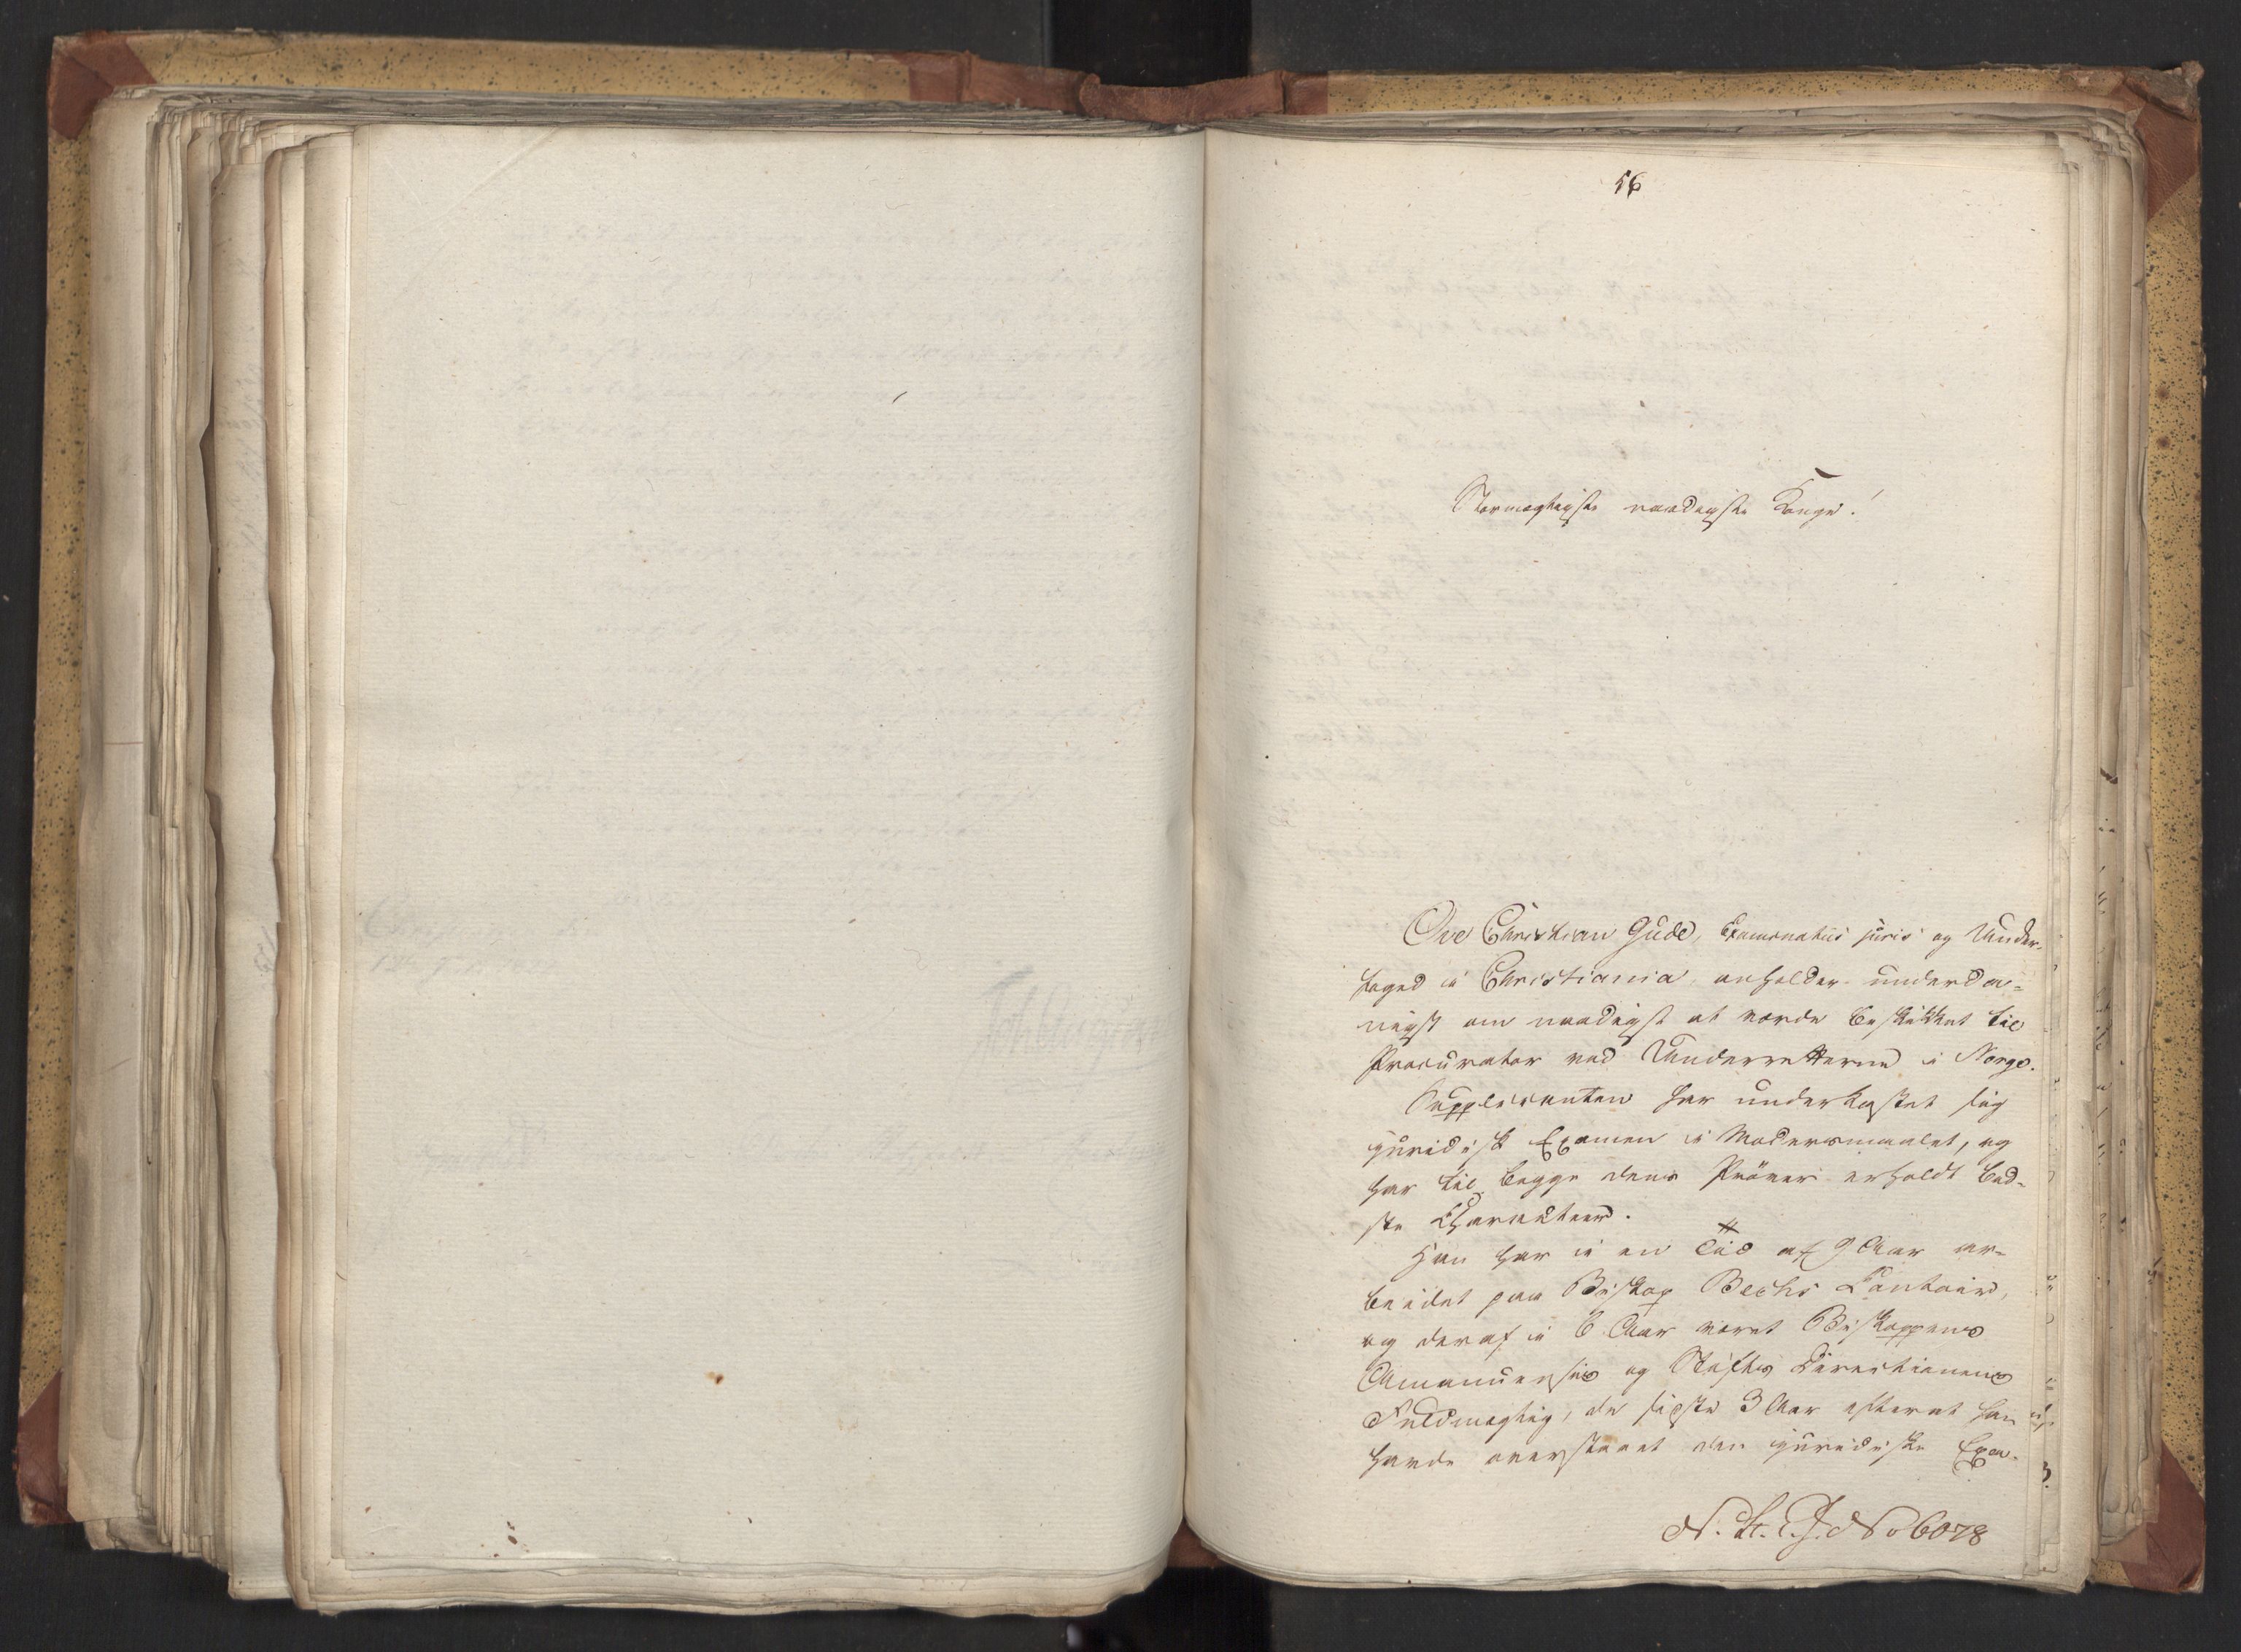 56
Stormægtigste naadigste Konge!
Ove Christian Gude, Examinatus juris og Under-
foged i Christiania, anholder underda-
nigst om naadigst at vorde beskikket til
Procurator ved Underretterne i Norge.
Supplicanten har underkastet sig
juridisk Examen i Modersmaalet, og
har til begge dens Prøver erholdt bed-
ste Charakteer.
Han har i en Tid af 9 Aar ar-
beidet paa Biskop Bechs Contoir,
og deraf i 6 Aar været Biskoppens
Amanuensis og Stifts Directionens
Fuldmægtig, de sidste 3 Aar efterat han
havde overstaaet den juridiske Exa-
N. St. C. J. No 6078